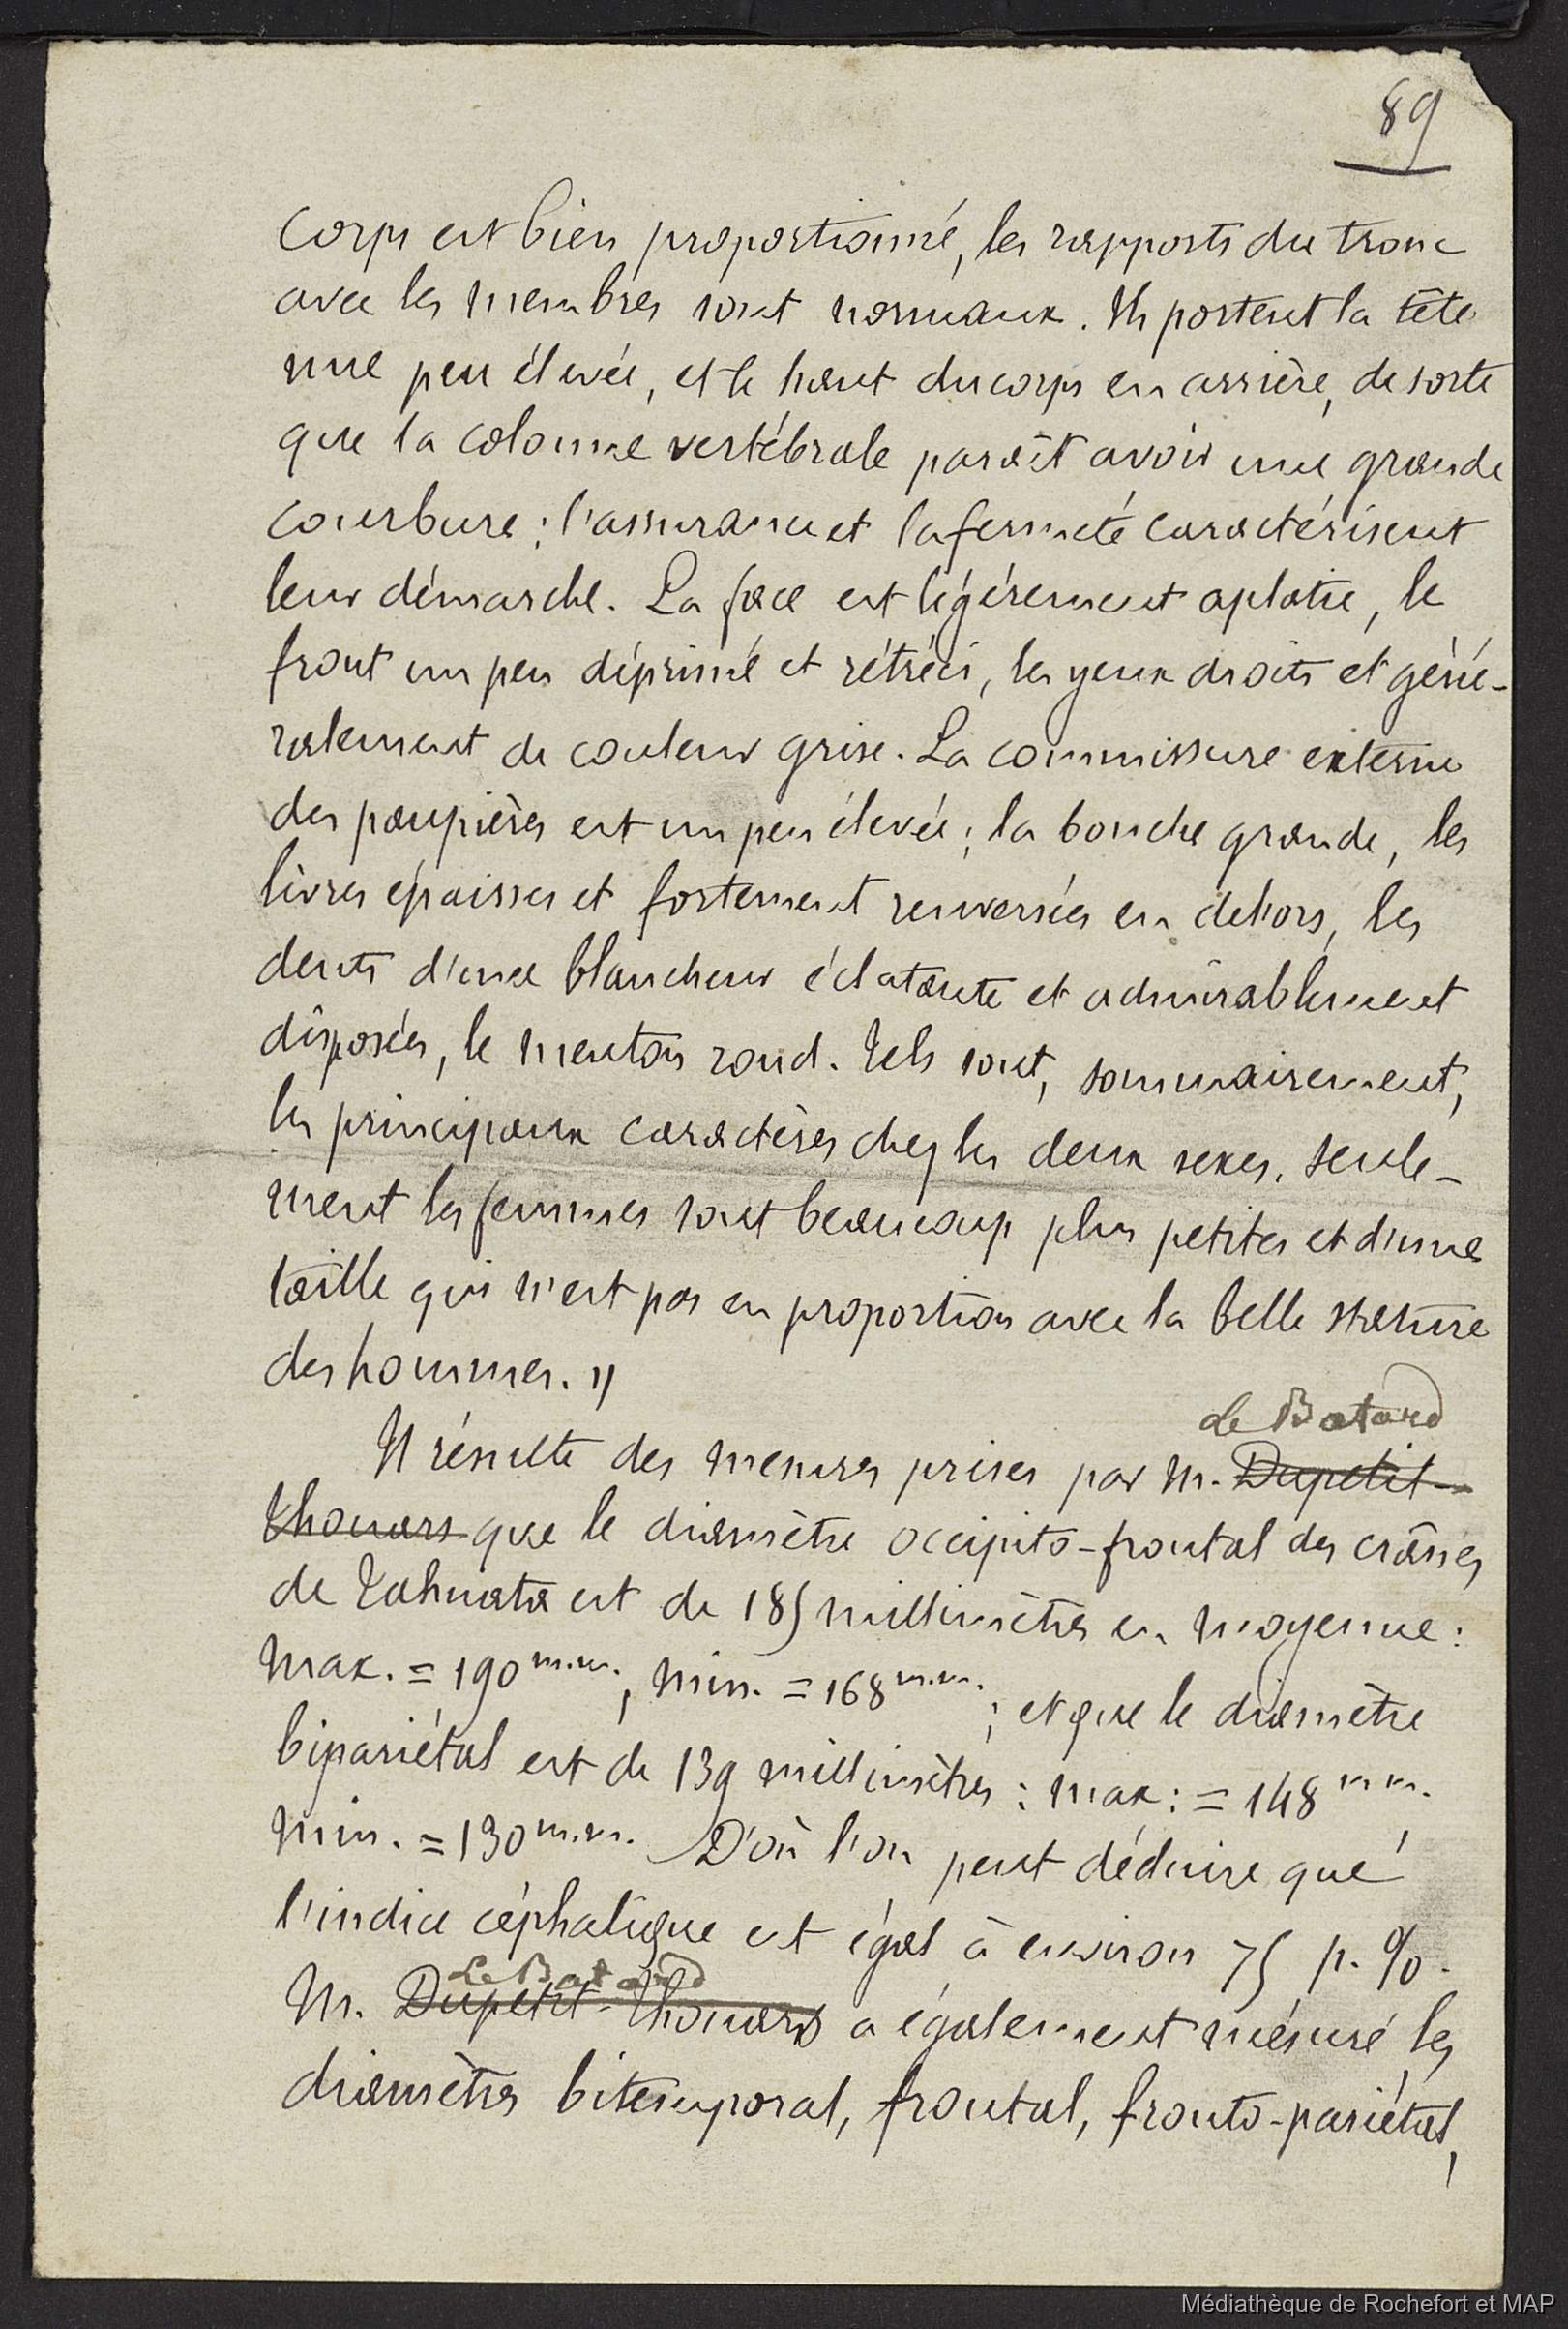 89
corps est bien proportionné, les rapports du tronc
avec les membres sont normaux. Ils portent la tête
une peu élevée, et le haut du corps en arrière, de sorte
que la colonne vertébrale paraît avoir une grande
courbure ; l'assurance et la fermeté caractérisent
leur démarche. La face est légèrement aplatie, le
front un peu déprimé et rétréci, les yeux droits et géné-
ralement de couleur grise. La commissure externe
des paupières est un peu élevée ; la bouche grande, les
lèvres épaisses et fortement renversées en dehors, les
dents d'une blancheur éclatante et admirablement
disposées, le menton rond. Tels sont, sommairement,
les principaux caractères chez les deux sexes. Seule-
ment les femmes sont beaucoup plus petites et d'une
taille qui n'est pas en proportion avec la belle stature
des hommes. »
Le Batard
Il résulte des mesures prises par M. Dupetit-
Thouars que le diamètre occipito-frontal des crânes
de Tahuata est de 185 millimètres en moyenne :
max. = 190 m.m. ; min. = 168 m.m. ; et que le diamètre
bipariétal est de 139 millimètres : max : = 148 m m.
min. = 130 m.m. D'où l'on peut déduire que
l'indice céphalique est égal à environ 75 p. %.
Le Batard
M. Dupetit-Thouars a également mésuré les
diamètres bitemporal, frontal, fronto-pariétal,
Médiathèque de Rochefort et MAP